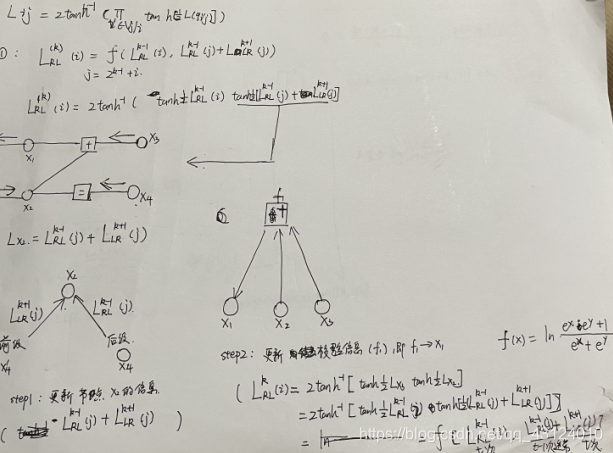 L i→j = 2tanh⁻¹ ( ∏ tanh ½ L(qi'j) )
①: L_RL^(k)(i) = f( L_RL^(k-1)(i), L_RL^(k-1)(j) + L_LR^(k+1)(j) )
j = 2^(k-1) + i.
L_RL^(k)(i) = 2tanh⁻¹ ( tanh ½ L_RL^(k-1)(i) tanh ½ [L_RL^(k-1)(j) + L_LR^(k+1)(j)]
X₁ + X₃
X₂ = X₄
L_X₂ = L_RL^(k-1)(j) + L_LR^(k+1)(j)
X₂
L_LR^(k+1)(j) L_RL^(k-1)(j)
前级 后级
X₄ X₄
f
+
X₁ X₂ X₃
step1: 更新 节点 X₂ 的信息
( L_RL^(k-1)(j) + L_LR^(k+1)(j) )
step2: 更新 校验信息 (f₁), 即 f₁→X₁
f(x) = ln (e^x e^y + 1) / (e^x + e^y)
( L_RL^k(i) = 2tanh⁻¹ [ tanh ½ L_X₃ tanh ½ L_X₂ ]
= 2tanh⁻¹ [ tanh ½ L_RL^(k-1)(j) tanh ½ (L_RL^(k-1)(j) + L_LR^(k+1)(j)) ] )
= f [ L_RL^(k-1)(i)
https://blog.csdn.net/qq_45124010